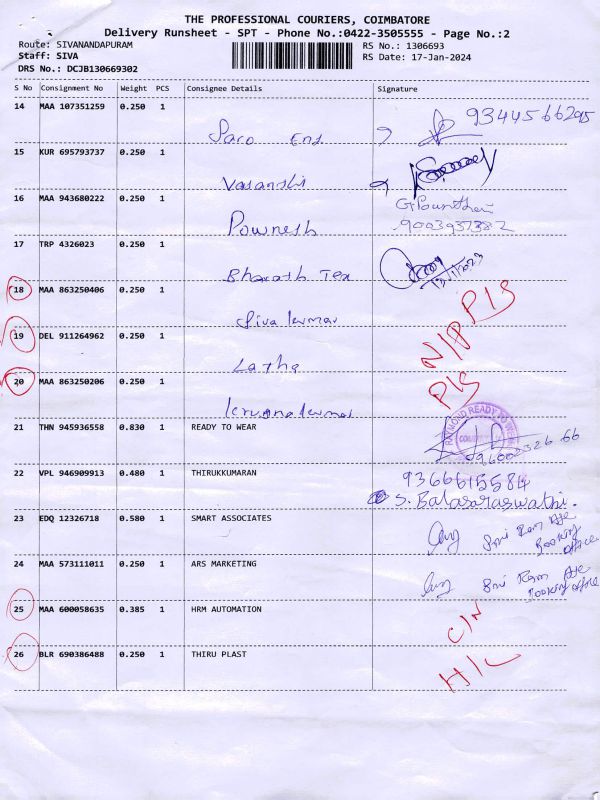 THE PROFESSIONAL COURIERS, COIMBATORE
Delivery Runsheet - SPT - Phone No.:0422-3505555 - Page No.:2
Route: SIVANANDAPURAM RS No.: 1306693
Staff: SIVA RS Date: 17-Jan-2024
DRS No.: DCJB130669302
S No Consignment No Weight PCS Consignee Details Signature
14 MAA 107351259 0.250 1
Saro Ent 9344566295
15 KUR 695793737 0.250 1
Vasanthi
16 MAA 943680222 0.250 1
Pownesh 9003937382
17 TRP 4326023 0.250 1
Bharath Tex
18 MAA 863250406 0.250 1 P/S
Siva kumar
19 DEL 911264962 0.250 1 N/P
Latha
20 MAA 863250206 0.250 1 P/S
krunakumar
21 THN 945936558 0.830 1 READY TO WEAR
22 VPL 946909913 0.480 1 THIRUKKUMARAN 9366615584
S. Balasaraswathi.
23 EDQ 12326718 0.580 1 SMART ASSOCIATES
Sri Ram
Booking
office
24 MAA 573111011 0.250 1 ARS MARKETING
Sri Ram
Booking
office
25 MAA 600058635 0.385 1 HRM AUTOMATION C/N
26 BLR 690386488 0.250 1 THIRU PLAST H/L